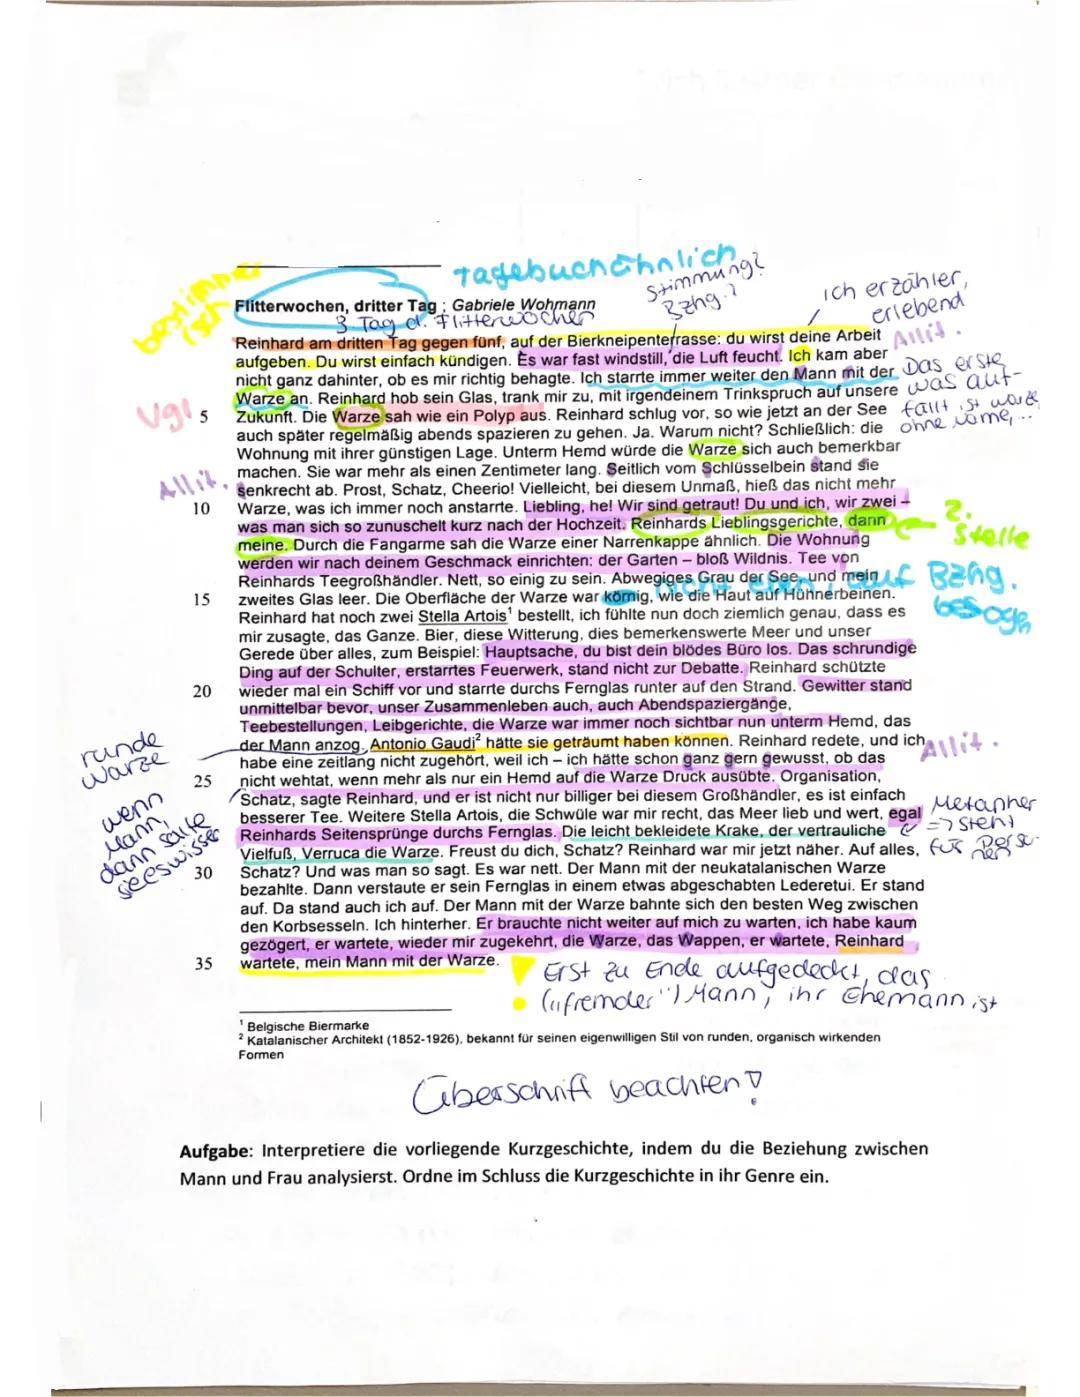 Tagebuchähnlich
bestimmerisch
Stimmung?
Bzhg.?
Ich erzähler,
erlebend
Flitterwochen, dritter Tag ; Gabriele Wohmann
3. Tag d. Flitterwochen
Reinhard am dritten Tag gegen fünf, auf der Bierkneipenterrasse: du wirst deine Arbeit
Allit.
aufgeben. Du wirst einfach kündigen. Es war fast windstill, die Luft feucht. Ich kam aber
nicht ganz dahinter, ob es mir richtig behagte. Ich starrte immer weiter den Mann mit der
Das erste
was auf-
fällt, ist warze
ohne name,...
Warze an. Reinhard hob sein Glas, trank mir zu, mit irgendeinem Trinkspruch auf unsere
Vgl
5 Zukunft. Die Warze sah wie ein Polyp aus. Reinhard schlug vor, so wie jetzt an der See
auch später regelmäßig abends spazieren zu gehen. Ja. Warum nicht? Schließlich: die
Wohnung mit ihrer günstigen Lage. Unterm Hemd würde die Warze sich auch bemerkbar
machen. Sie war mehr als einen Zentimeter lang. Seitlich vom Schlüsselbein stand sie
Allit.
senkrecht ab. Prost, Schatz, Cheerio! Vielleicht, bei diesem Unmaß, hieß das nicht mehr
10 Warze, was ich immer noch anstarrte. Liebling, he! Wir sind getraut! Du und ich, wir zwei –
was man sich so zunuschelt kurz nach der Hochzeit. Reinhards Lieblingsgerichte, dann
2.
Stelle
meine. Durch die Fangarme sah die Warze einer Narrenkappe ähnlich. Die Wohnung
werden wir nach deinem Geschmack einrichten: der Garten – bloß Wildnis. Tee von
Reinhards Teegroßhändler. Nett, so einig zu sein. Abwegiges Grau der See, und mein
auf Bzhg.
bezogen
15 zweites Glas leer. Die Oberfläche der Warze war körnig, wie die Haut auf Hühnerbeinen.
Reinhard hat noch zwei Stella Artois¹ bestellt, ich fühlte nun doch ziemlich genau, dass es
mir zusagte, das Ganze. Bier, diese Witterung, dies bemerkenswerte Meer und unser
Gerede über alles, zum Beispiel: Hauptsache, du bist dein blödes Büro los. Das schrundige
Ding auf der Schulter, erstarrtes Feuerwerk, stand nicht zur Debatte. Reinhard schützte
20 wieder mal ein Schiff vor und starrte durchs Fernglas runter auf den Strand. Gewitter stand
unmittelbar bevor, unser Zusammenleben auch, auch Abendspaziergänge,
Teebestellungen, Leibgerichte, die Warze war immer noch sichtbar nun unterm Hemd, das
runde
Warze
der Mann anzog. Antonio Gaudi² hätte sie geträumt haben können. Reinhard redete, und ich
habe eine zeitlang nicht zugehört, weil ich – ich hätte schon ganz gern gewusst, ob das
Allit.
25 nicht wehtat, wenn mehr als nur ein Hemd auf die Warze Druck ausübte. Organisation,
wenn
Mann,
dann sollte
sees wisser
Schatz, sagte Reinhard, und er ist nicht nur billiger bei diesem Großhändler, es ist einfach
besserer Tee. Weitere Stella Artois, die Schwüle war mir recht, das Meer lieb und wert, egal
Metapher
=> steht
für Person
Reinhards Seitensprünge durchs Fernglas. Die leicht bekleidete Krake, der vertrauliche
Vielfuß, Verruca die Warze. Freust du dich, Schatz? Reinhard war mir jetzt näher. Auf alles,
30 Schatz? Und was man so sagt. Es war nett. Der Mann mit der neukatalanischen Warze
bezahlte. Dann verstaute er sein Fernglas in einem etwas abgeschabten Lederetui. Er stand
auf. Da stand auch ich auf. Der Mann mit der Warze bahnte sich den besten Weg zwischen
den Korbsesseln. Ich hinterher. Er brauchte nicht weiter auf mich zu warten, ich habe kaum
gezögert, er wartete, wieder mir zugekehrt, die Warze, das Wappen, er wartete, Reinhard
35 wartete, mein Mann mit der Warze.
! Erst zu Ende aufgedeckt, das
("fremder") Mann, ihr Ehemann ist
¹ Belgische Biermarke
² Katalanischer Architekt (1852-1926), bekannt für seinen eigenwilligen Stil von runden, organisch wirkenden
Formen
Überschrift beachten!
Aufgabe: Interpretiere die vorliegende Kurzgeschichte, indem du die Beziehung zwischen
Mann und Frau analysierst. Ordne im Schluss die Kurzgeschichte in ihr Genre ein.